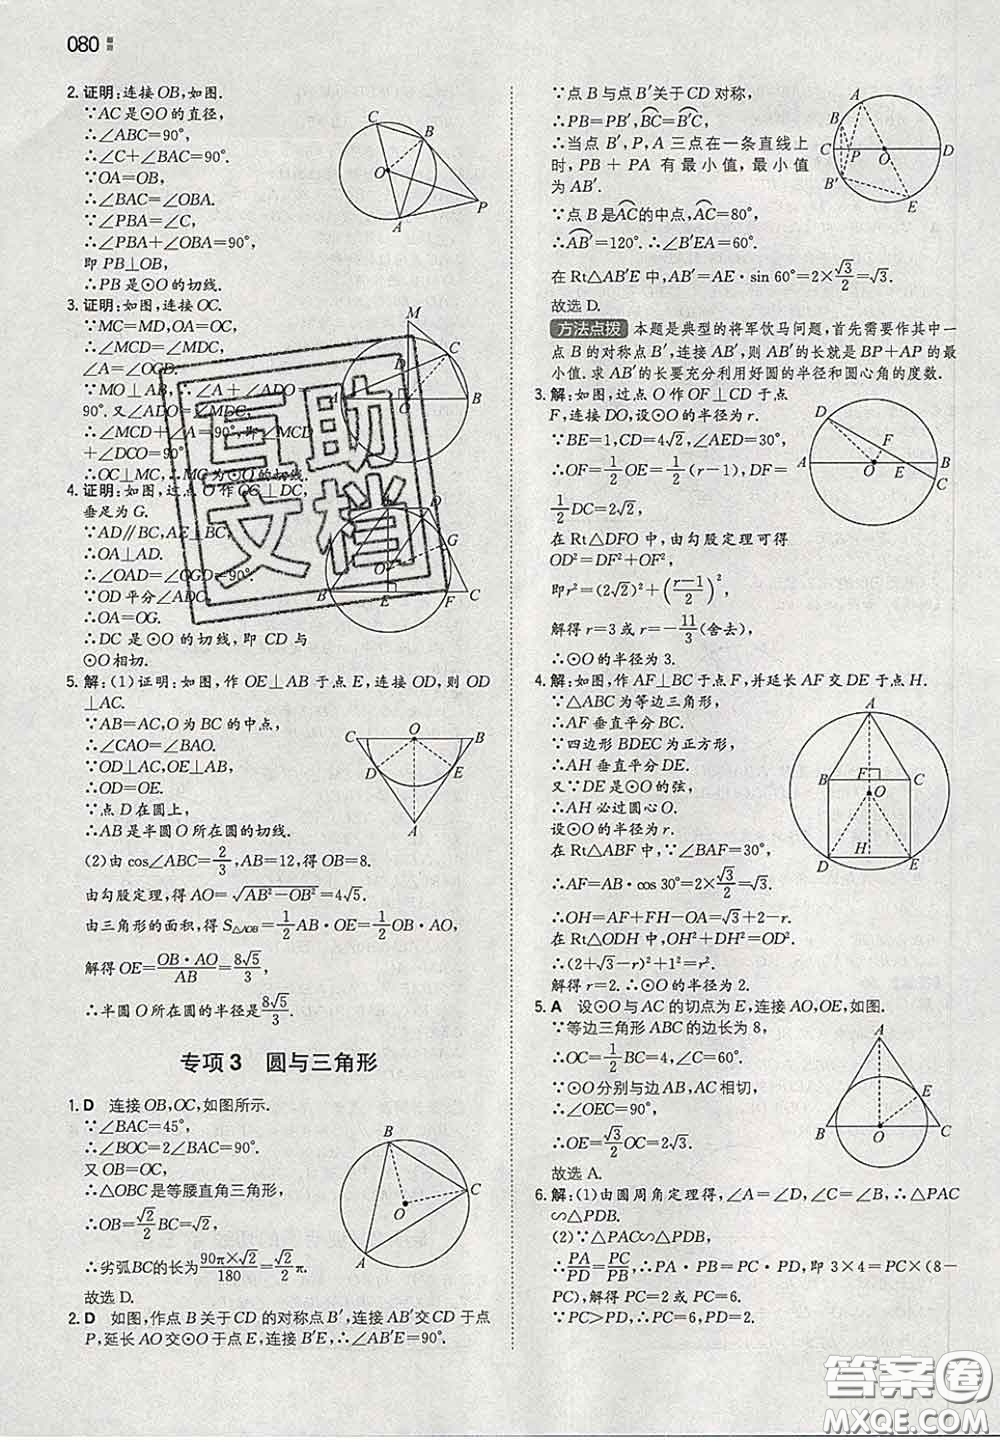 080
2. 证明:连接OB,如图.
∵AC是⊙O的直径,
∴∠ABC=90°,
∴∠C+∠BAC=90°.
∵OA=OB,
∴∠BAC=∠OBA.
∵∠PBA=∠C,
∴∠PBA+∠OBA=90°,
即 PB⊥OB,
∴PB是⊙O的切线.
3. 证明:如图,连接OC.
∵MC=MD,OA=OC,
∴∠MCD=∠MDC,
∠A=∠OCD.
∵MO⊥AB,∴∠A+∠ADO=
90°.又∠ADO=∠MDC,
∴∠MCD+∠A=90°,即∠MCD
+∠OCD=90°.
∴OC⊥MC,∴MC为⊙O的切线.
4. 证明:如图,过点O作OG⊥DC,
垂足为G.
∵AD∥BC,AE⊥BC,
∴OA⊥AD.
∴∠OAD=∠OGD=90°.
∵OD平分∠ADC,
∴OA=OG.
∴DC是⊙O的切线,即 CD 与
⊙O相切.
5. 解:(1)证明:如图,作OE⊥AB于点E,连接OD,则OD
⊥AC.
∵AB=AC,O为BC的中点,
∴∠CAO=∠BAO.
∵OD⊥AC,OE⊥AB,
∴OD=OE.
∵点D在圆上,
∴AB是半圆O所在圆的切线.
(2)由 cos∠ABC=2/3,AB=12,得OB=8.
由勾股定理,得AO=√(AB²-OB²)=4√5.
由三角形的面积,得S△AOB=1/2 AB·OE=1/2 OB·AO,
解得OE=OB·AO/AB=8√5/3,
∴半圆O所在圆的半径是8√5/3.
专项3 圆与三角形
1. D 连接OB,OC,如图所示.
∵∠BAC=45°,
∴∠BOC=2∠BAC=90°.
又OB=OC,
∴△OBC是等腰直角三角形,
∴OB=√2/2 BC=√2,
∴劣弧BC的长为90π×√2/180=√2/2 π.
故选D.
2. D 如图,作点B关于CD的对称点B′,连接AB′交CD于点
P,延长AO交⊙O于点E,连接B′E,∴∠AB′E=90°.
∵点B与点B′关于CD对称,
∴PB=PB′,BC=B′C,
∴当点 B′,P,A 三点在一条直线上
时,PB+PA 有最小值,最小值
为AB′.
∵点B是AC的中点,AC=80°,
∴AB′=120°.∴∠B′EA=60°.
在Rt△AB′E中,AB′=AE·sin 60°=2×√3/2=√3.
故选D.
方法点拨 本题是典型的将军饮马问题,首先需要作其中一
点B的对称点B′,连接AB′,则AB′的长就是BP+AP的最
小值.求AB′的长要充分利用好圆的半径和圆心角的度数.
3. 解:如图,过点O作OF⊥CD于点
F,连接DO,设⊙O的半径为r.
∵BE=1,CD=4√2,∠AED=30°,
∴OF=1/2 OE=1/2(r-1),DF=
1/2 DC=2√2,
在Rt△DFO中,由勾股定理可得
OD²=DF²+OF²,
即r²=(2√2)²+((r-1)/2)²,
解得r=3或r=-11/3(舍去),
∴⊙O的半径为3.
4. 解:如图,作AF⊥BC于点F,并延长AF交DE于点H.
∵△ABC为等边三角形,
∴AF垂直平分BC.
∵四边形BDEC为正方形,
∴AH垂直平分DE.
又∵DE是⊙O的弦,
∴AH必过圆心O.
设⊙O的半径为r.
在Rt△ABF中,∵∠BAF=30°,
∴AF=AB·cos 30°=2×√3/2=√3,
∴OH=AF+FH-OA=√3+2-r.
在Rt△ODH中,OH²+DH²=OD².
∴(2+√3-r)²+1²=r².
解得r=2.∴⊙O的半径为2.
5. A 设⊙O与AC的切点为E,连接AO,OE,如图.
∵等边三角形ABC的边长为8,
∴OC=1/2 BC=4,∠C=60°.
∵⊙O分别与边AB,AC相切,
∴∠OEC=90°,
∴OE=√3/2 OC=2√3.
故选A.
6. 解:(1)由圆周角定理得,∠A=∠D,∠C=∠B,∴△PAC
∽△PDB.
(2)∵△PAC∽△PDB,
∴PA/PD=PC/PB,∴PA·PB=PC·PD,即 3×4=PC×(8-
PC),解得PC=2或PC=6.
∵PC>PD,∴PC=6,PD=2.
互助
文档
答案圈
MXQE.COM